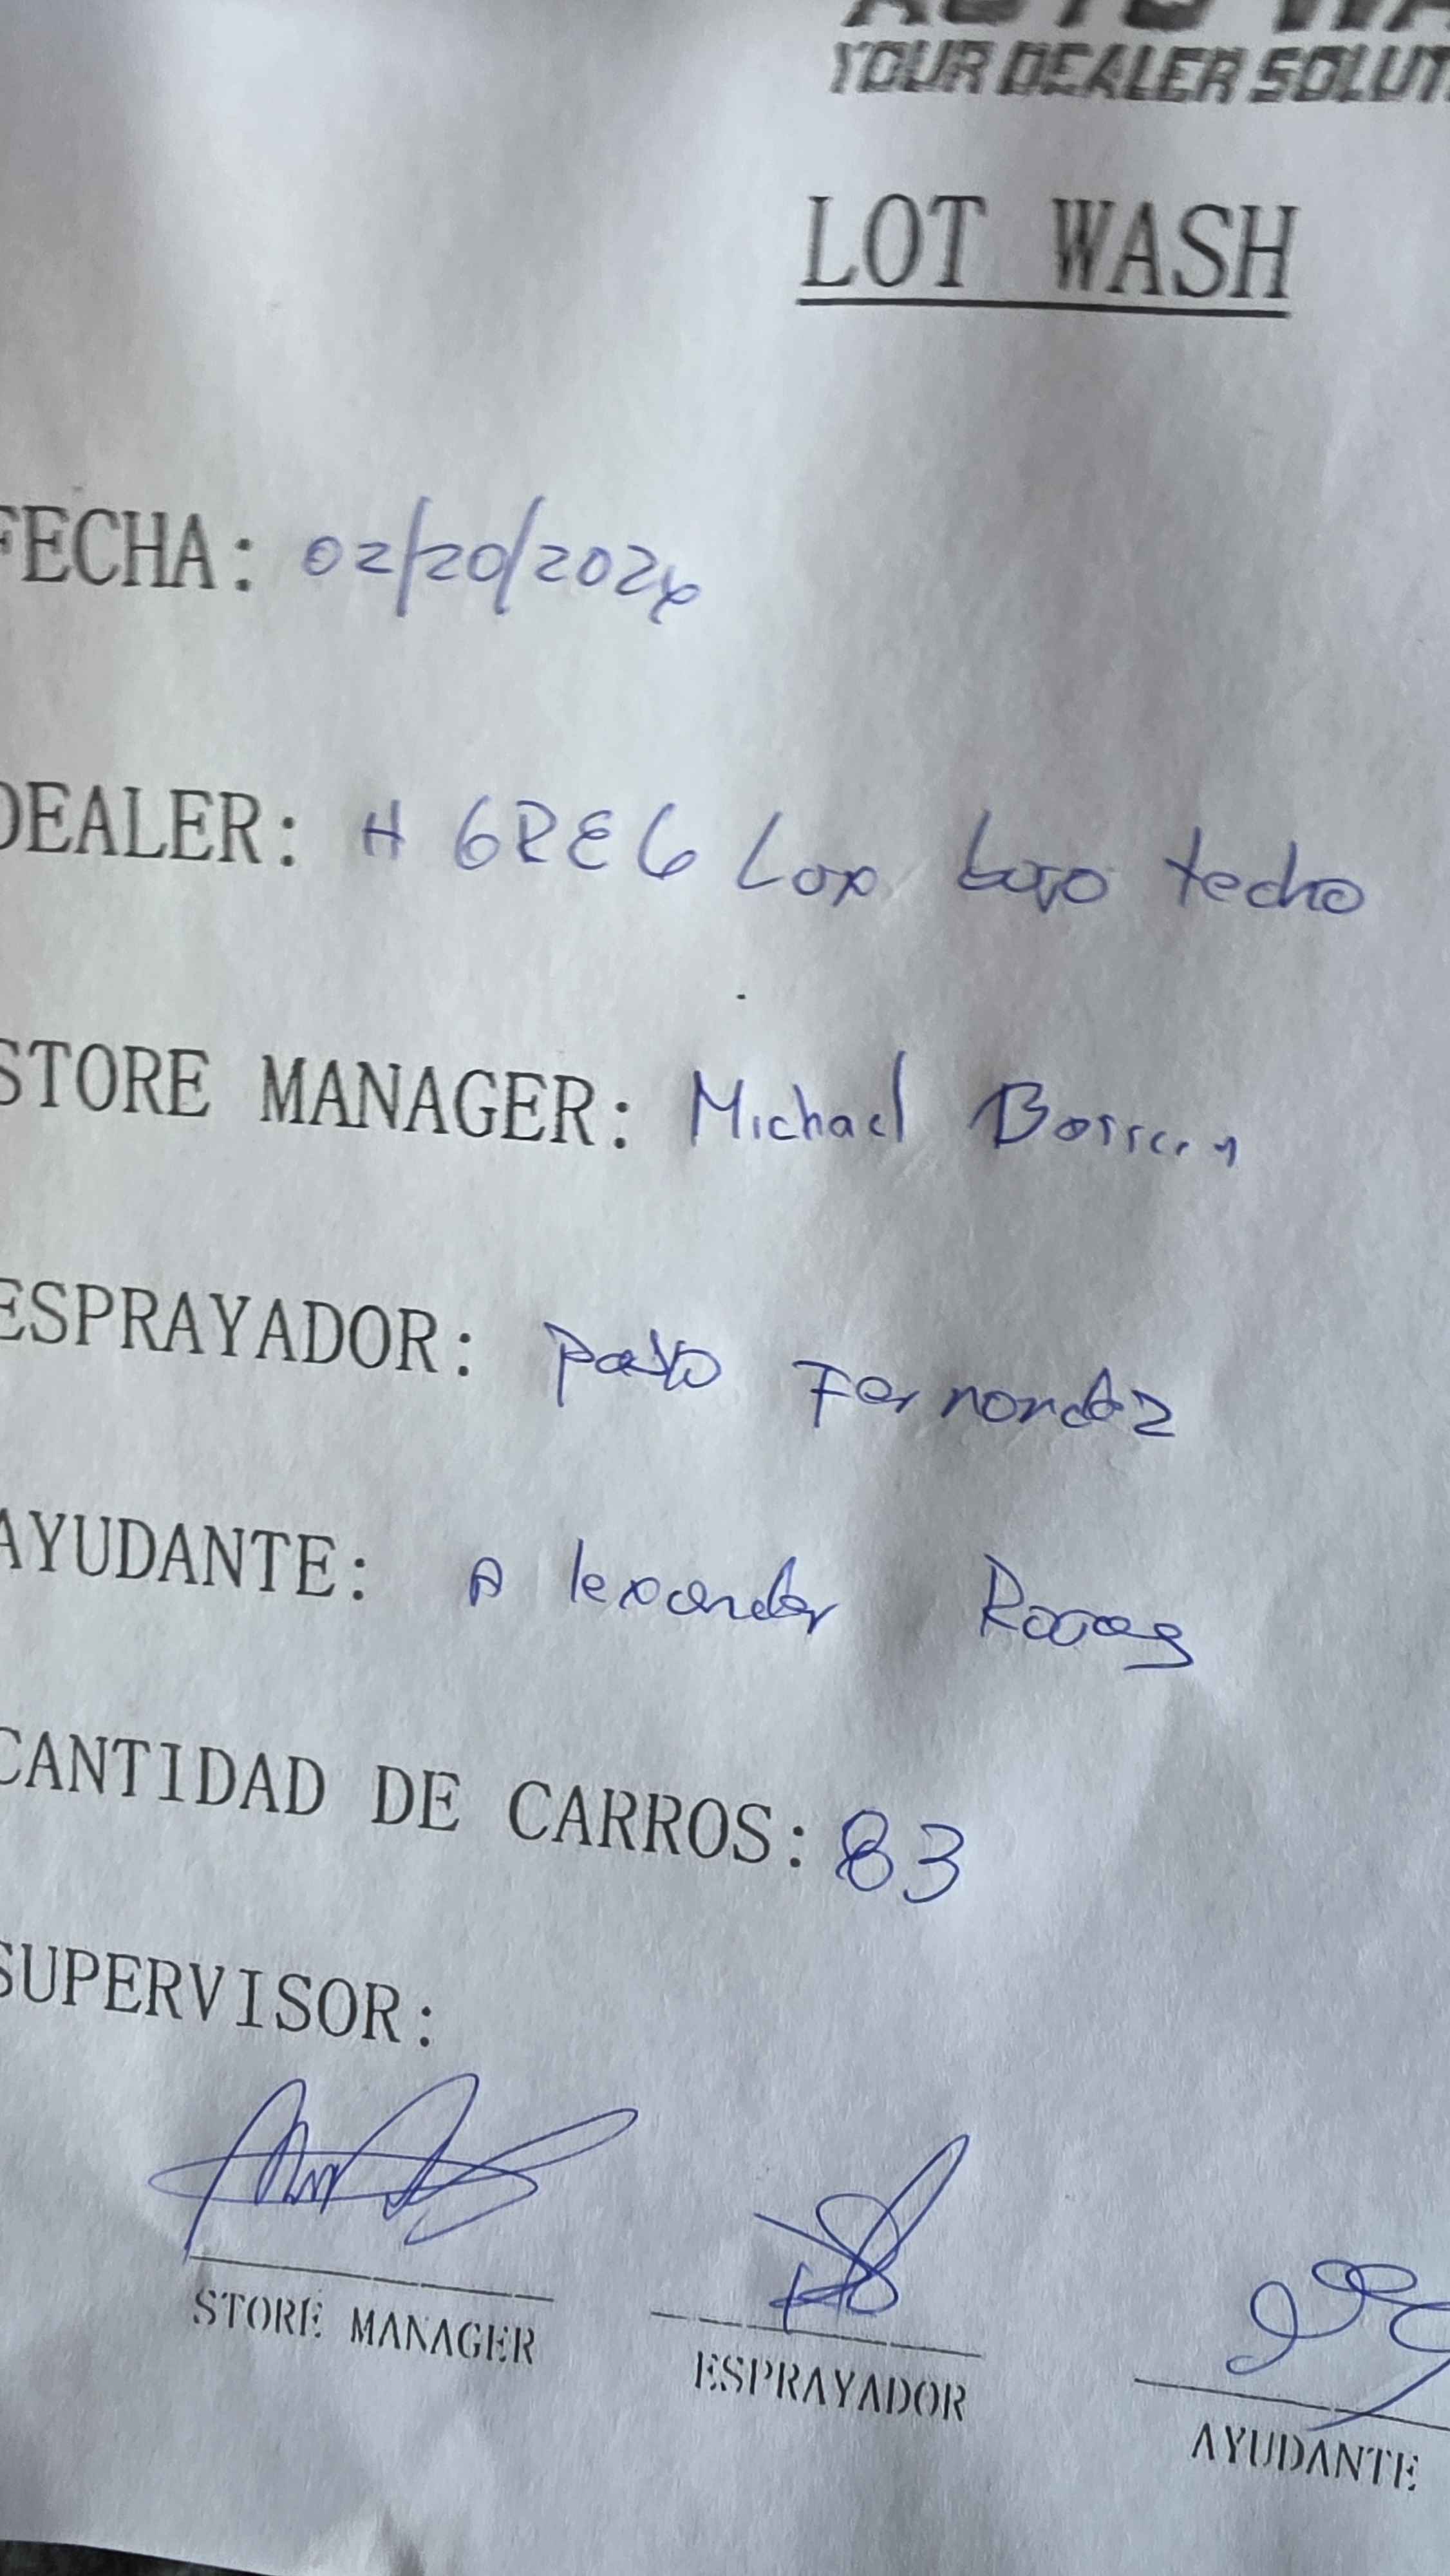 YOUR DEALER SOLUT
LOT WASH
FECHA: 02/20/2026
DEALER: H GREG Lox bajo techo
STORE MANAGER: Michael
ESPRAYADOR: Pablo Fernandez
AYUDANTE: Alexander Rojas
CANTIDAD DE CARROS: 83
SUPERVISOR:
STORE MANAGER
ESPRAYADOR
AYUDANTE